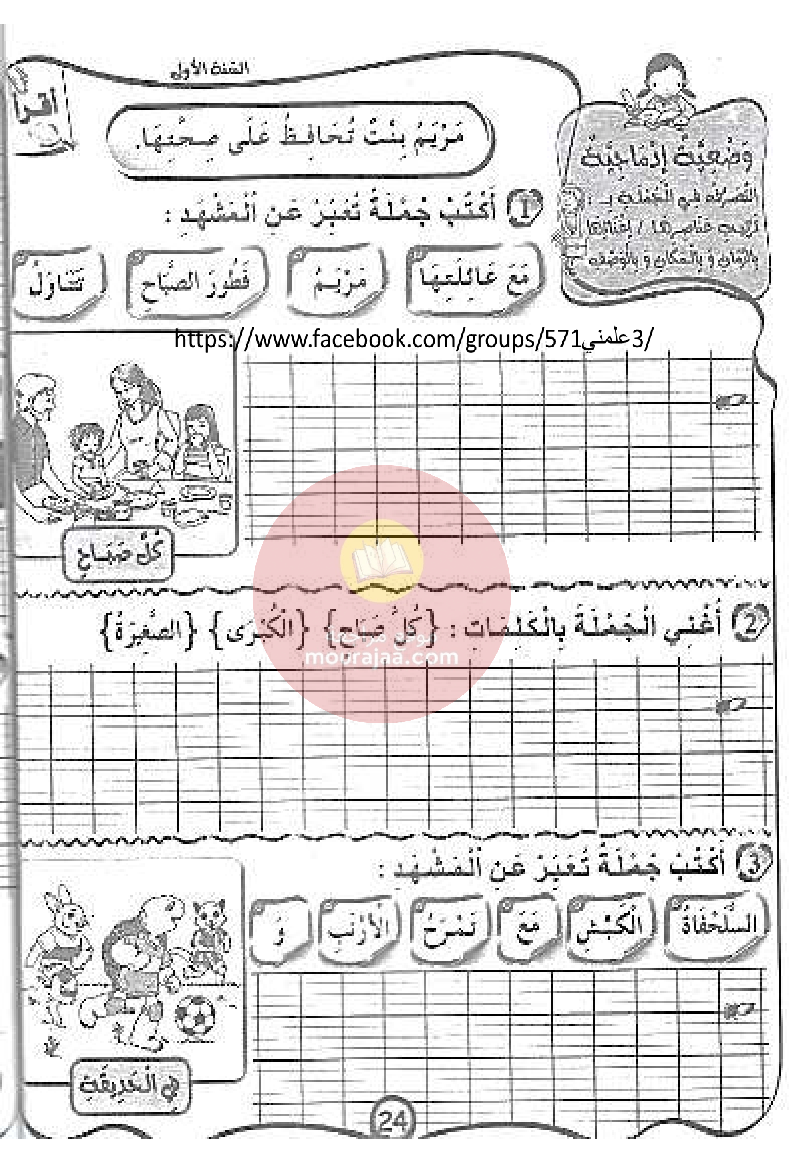 السّنة الأولى
أقرأ
مَرْيَمُ بِنْتٌ تُحَافِظُ عَلَى صِحَّتِهَا.
وَضْعِيَّةٌ إِدْمَاجِيَّةٌ
التَّصَرُّفُ فِي الْجُمْلَةِ بِـ :
تَرْتِيبِ عَنَاصِرِهَا / إِغْنَائِهَا
بِالزَّمَانِ وَ بِالْمَكَانِ وَ بِالْوَصْفِ
1 أَكْتُبُ جُمْلَةً تُعَبِّرُ عَنِ الْمَشْهَدِ :
مَعَ عَائِلَتِهَا مَرْيَمُ فَطُورَ الصَّبَاحِ تَتَنَاوَلُ
https://www.facebook.com/groups/571علمني3/
كُلَّ صَبَاحٍ
2 أُغْنِي الْجُمْلَةَ بِالْكَلِمَاتِ : {كُلَّ صَبَاحٍ} {الْكُبْرَى} {الصَّغِيرَةُ}
moorajaa.com
3 أَكْتُبُ جُمْلَةً تُعَبِّرُ عَنِ الْمَشْهَدِ :
السُّلَحْفَاةُ الْكَبْشِ مَعَ تَمْرَحُ الْأَرْنَبِ وَ
فِي الْحَدِيقَةِ
24